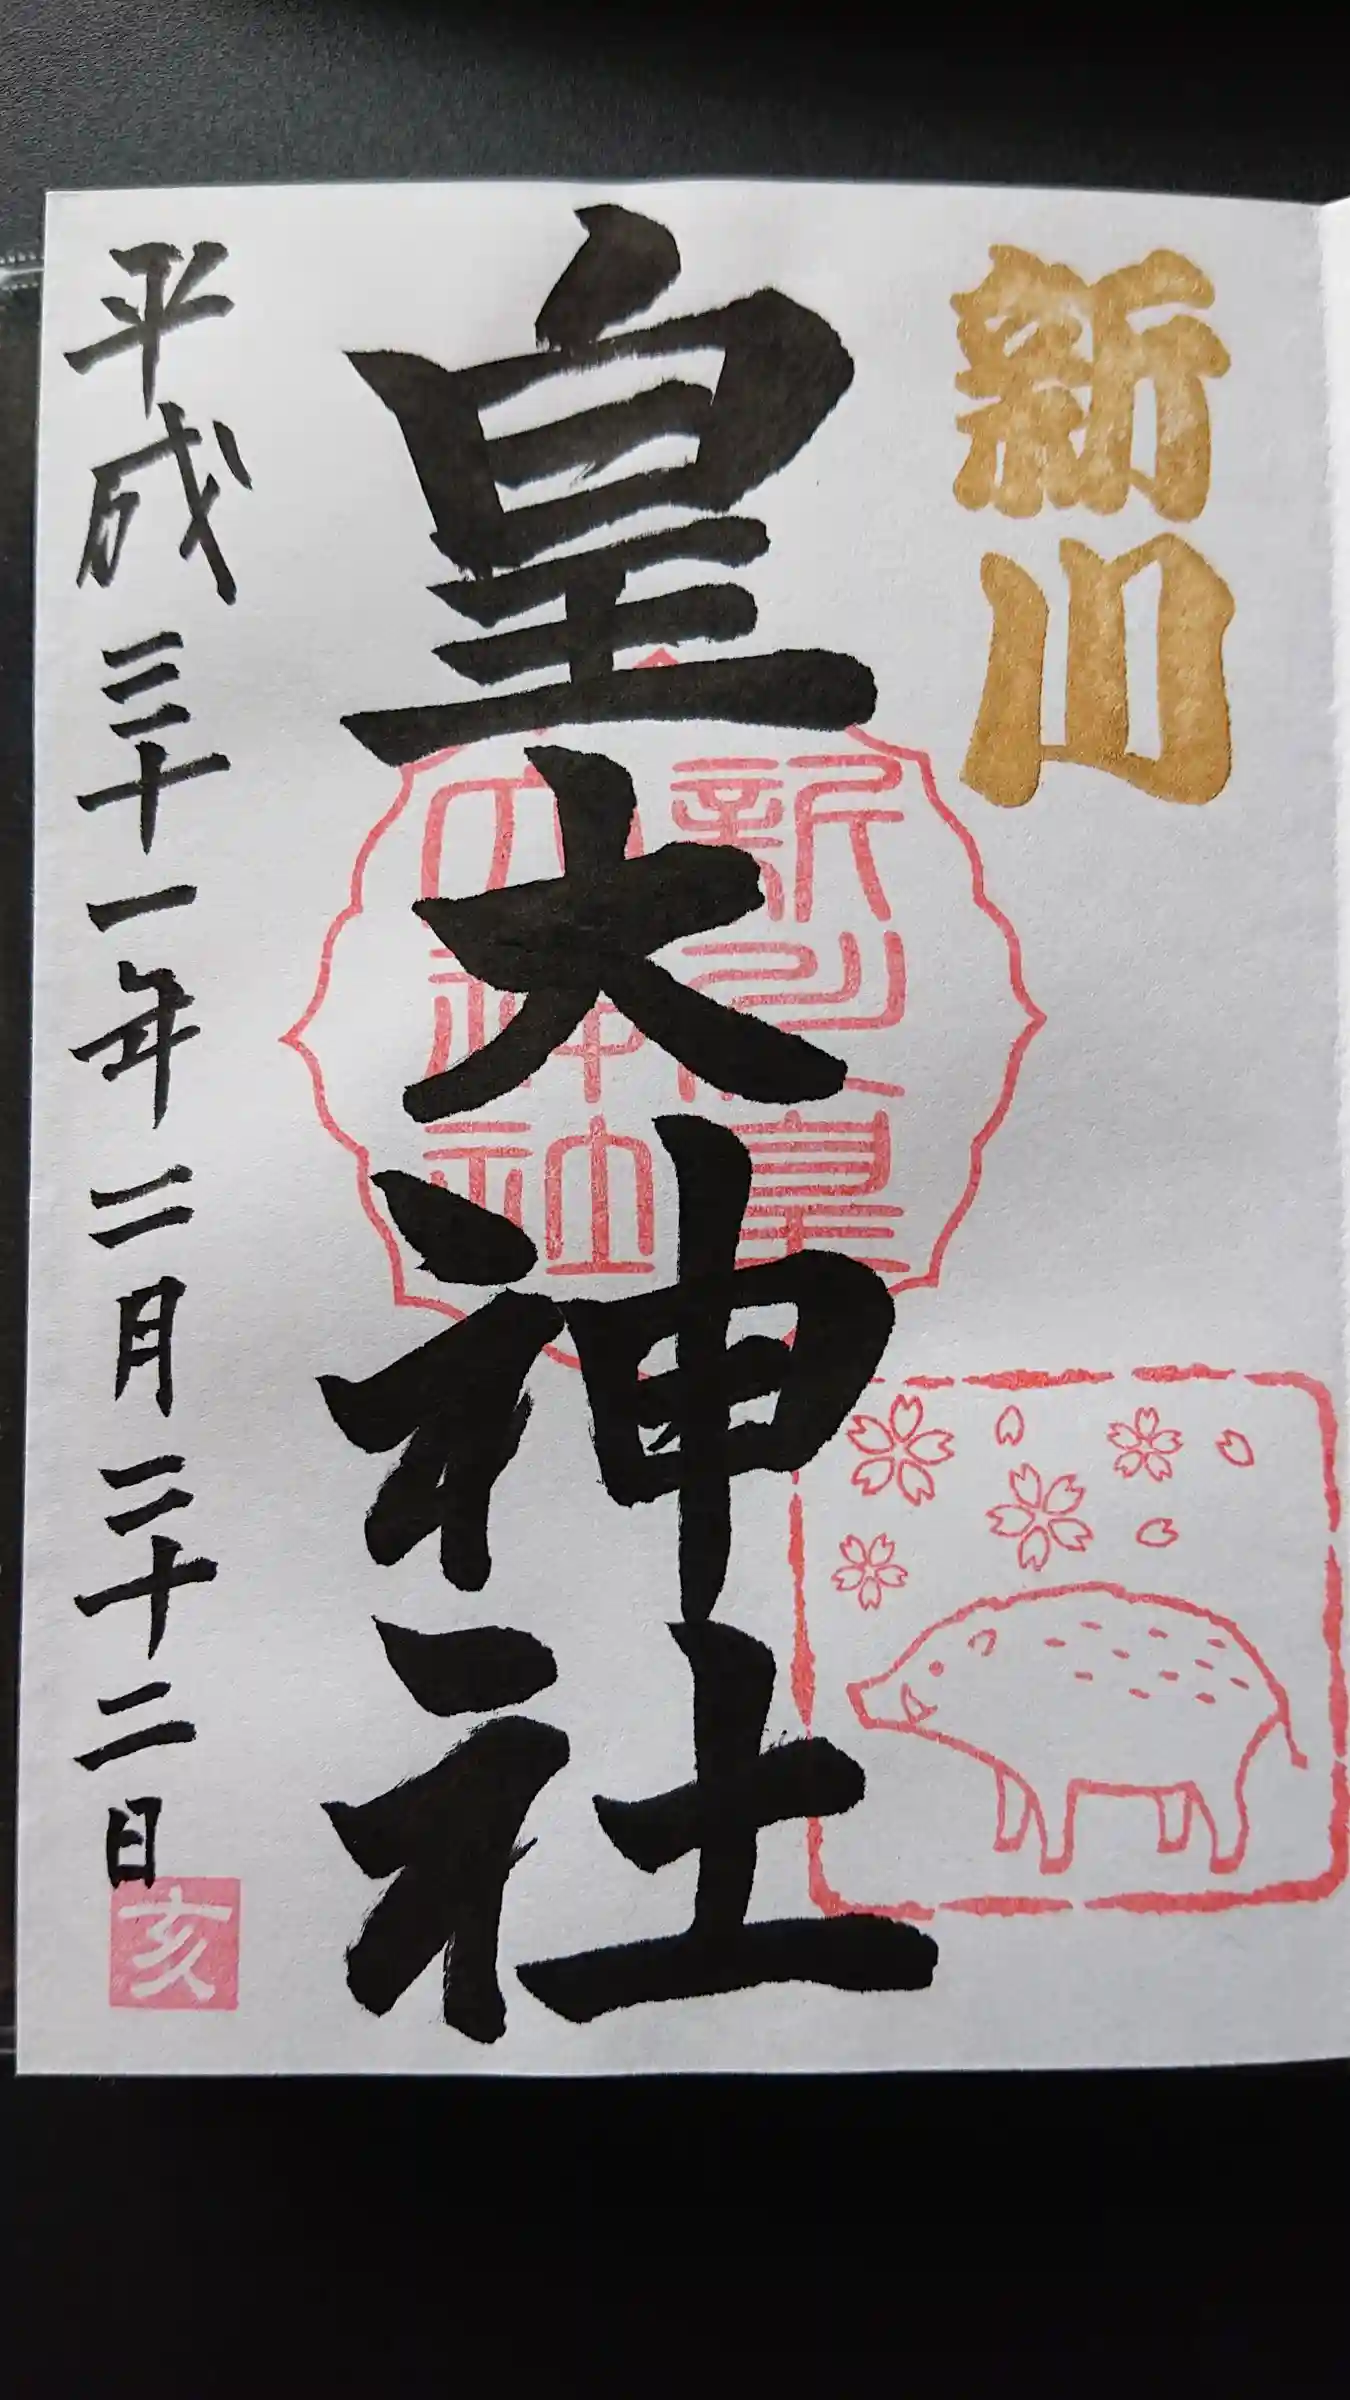 新川
皇大神社
新川皇大神社
平成三十一年二月二十二日
亥